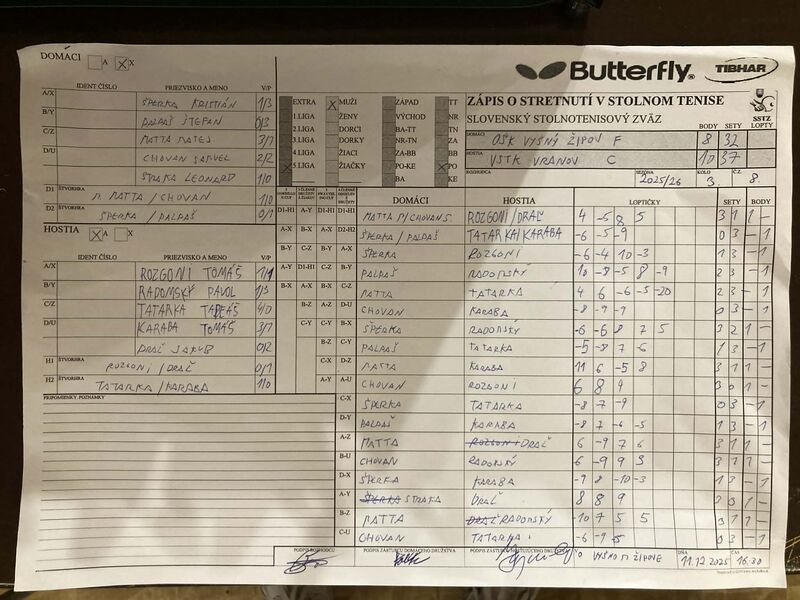 DOMÁCI A X
IDENT ČÍSLO PRIEZVISKO A MENO V/P
A/X ŠPERKA KRISTIÁN 1/3
B/Y PALPAŠ ŠTEFAN 0/3
C/Z MATTA MATEJ 3/1
D/U CHOVAN SAMUEL 2/2
STRAKA LEONARD 1/0
D1 ŠTVORHRA M. MATTA/CHOVAN 1/0
D2 ŠPERKA/PALPAŠ 0/1
HOSTIA A X
IDENT ČÍSLO PRIEZVISKO A MENO V/P
A/X ROZGONI TOMÁŠ 1/1
B/Y RADOMSKÝ PAVOL 1/3
C/Z TATARKA TADEÁŠ 4/0
D/U KARABA TOMÁŠ 3/1
DRAĽ JAKUB 0/2
H1 ŠTVORHRA ROZGONI/DRAĽ 0/1
H2 ŠTVORHRA TATARKA/KARABA 1/0
PRIPOMIENKY, POZNÁMKY
Butterfly TIBHAR
EXTRA X MUŽI ZÁPAD TT
1.LIGA ŽENY VÝCHOD NR
2.LIGA DORCI BA-TT TN
3.LIGA DORKY NR-TN ZA
4.LIGA ŽIACI ZA-BB BB
5.LIGA ŽIAČKY PO-KE PO
BA KE
ZÁPIS O STRETNUTÍ V STOLNOM TENISE
SLOVENSKÝ STOLNOTENISOVÝ ZVÄZ
SSTZ
BODY SETY LOPTY
DOMÁCI OŠK VYŠNÝ ŽIPOV F 8 32
HOSTIA VSTK VRANOV C 10 37
ROZHODCA SEZÓNA 2025/26 KOLO 3. Č 8.
DOMÁCI HOSTIA LOPTIČKY SETY BODY
D1-H1 A-Y D1-H1 D1-H1 MATTA M/CHOVAN S. ROZGONI/DRAĽ 4 -5 8 5 3 1 1 -
A-X B-X A-X D2-H2 ŠPERKA/PALPAŠ TATARKA/KARABA -6 -5 -9 0 3 - 1
B-Y C-Z B-Y A-X ŠPERKA ROZGONI -6 -4 10 -3 1 3 - 1
A-Y D1-H1 C-Z B-Y PALPAŠ RADOMSKÝ 10 -8 -5 8 -9 2 3 - 1
B-X A-X B-X C-Z MATTA TATARKA 4 6 -6 -5 -20 2 3 - 1
B-Z A-Z D-U CHOVAN KARABA -8 -9 -7 0 3 - 1
C-Y C-Y B-X ŠPERKA RADOMSKÝ -6 -6 8 7 5 3 2 1 -
B-Z C-Y PALPAŠ TATARKA -5 -8 7 -6 1 3 - 1
C-X D-Z MATTA KARABA 11 6 -5 8 3 1 1 -
A-Y A-U CHOVAN ROZGONI 6 8 4 3 0 1 -
C-X ŠPERKA TATARKA -8 -7 -9 0 3 - 1
D-Y PALPAŠ KARABA -8 7 -6 -5 1 3 - 1
A-Z MATTA ROZGONI DRAĽ 6 -9 7 6 3 1 1 -
B-U CHOVAN RADOMSKÝ 6 -9 9 3 3 1 1 -
D-X ŠPERKA KARABA -9 8 -10 -3 1 3 - 1
A-Y ŠPERKA STRAKA DRAĽ 8 8 9 3 0 1 -
B-Z MATTA DRAĽ RADOMSKÝ -10 7 5 5 3 1 1 -
C-U CHOVAN TATARKA -6 -7 -5 0 3 - 1
PODPIS ROZHODCU PODPIS ZÁSTUPCU DOMÁCEHO DRUŽSTVA PODPIS ZÁSTUPCU HOSŤUJÚCEHO DRUŽSTVA V/O VYŠNOM ŽIPOVE DŇA 11.12 2025 ČAS 16:30